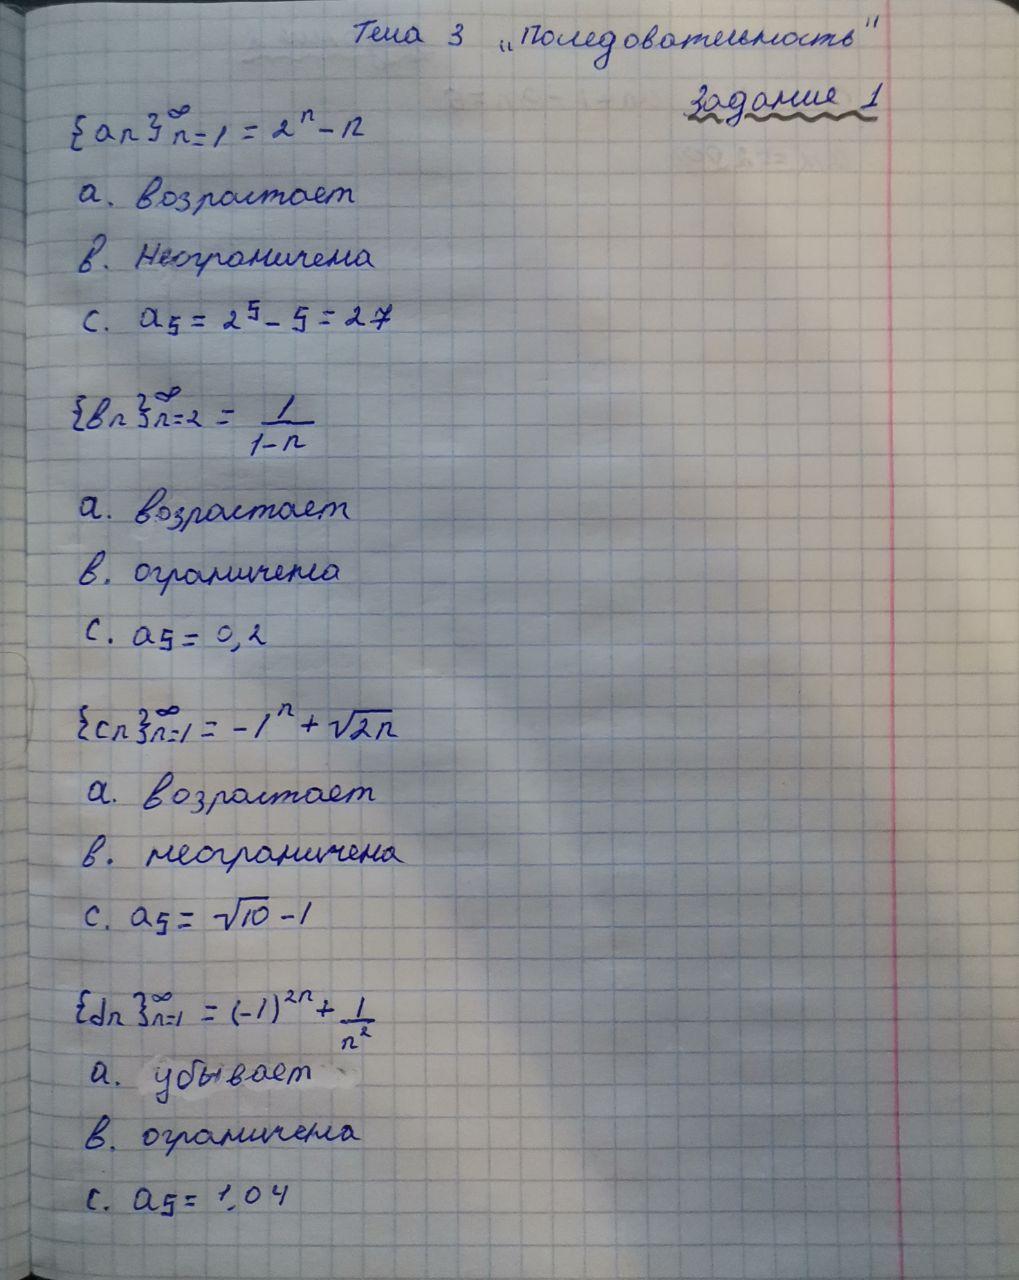 Тема 3 „Последовательность"
Задание 1
{an}∞n=1 = 2ⁿ - n
a. возрастает
в. Неограничена
c. a₅ = 2⁵ - 5 = 27
{вn}∞n=2 = 1/(1-n)
a. возрастает
в. ограничена
c. a₅ = 0,2
{cn}∞n=1 = -1ⁿ + √2n
a. возрастает
в. неограничена
c. a₅ = √10 - 1
{dn}∞n=1 = (-1)²ⁿ + 1/n²
a. убывает
в. ограничена
c. a₅ = 1,04